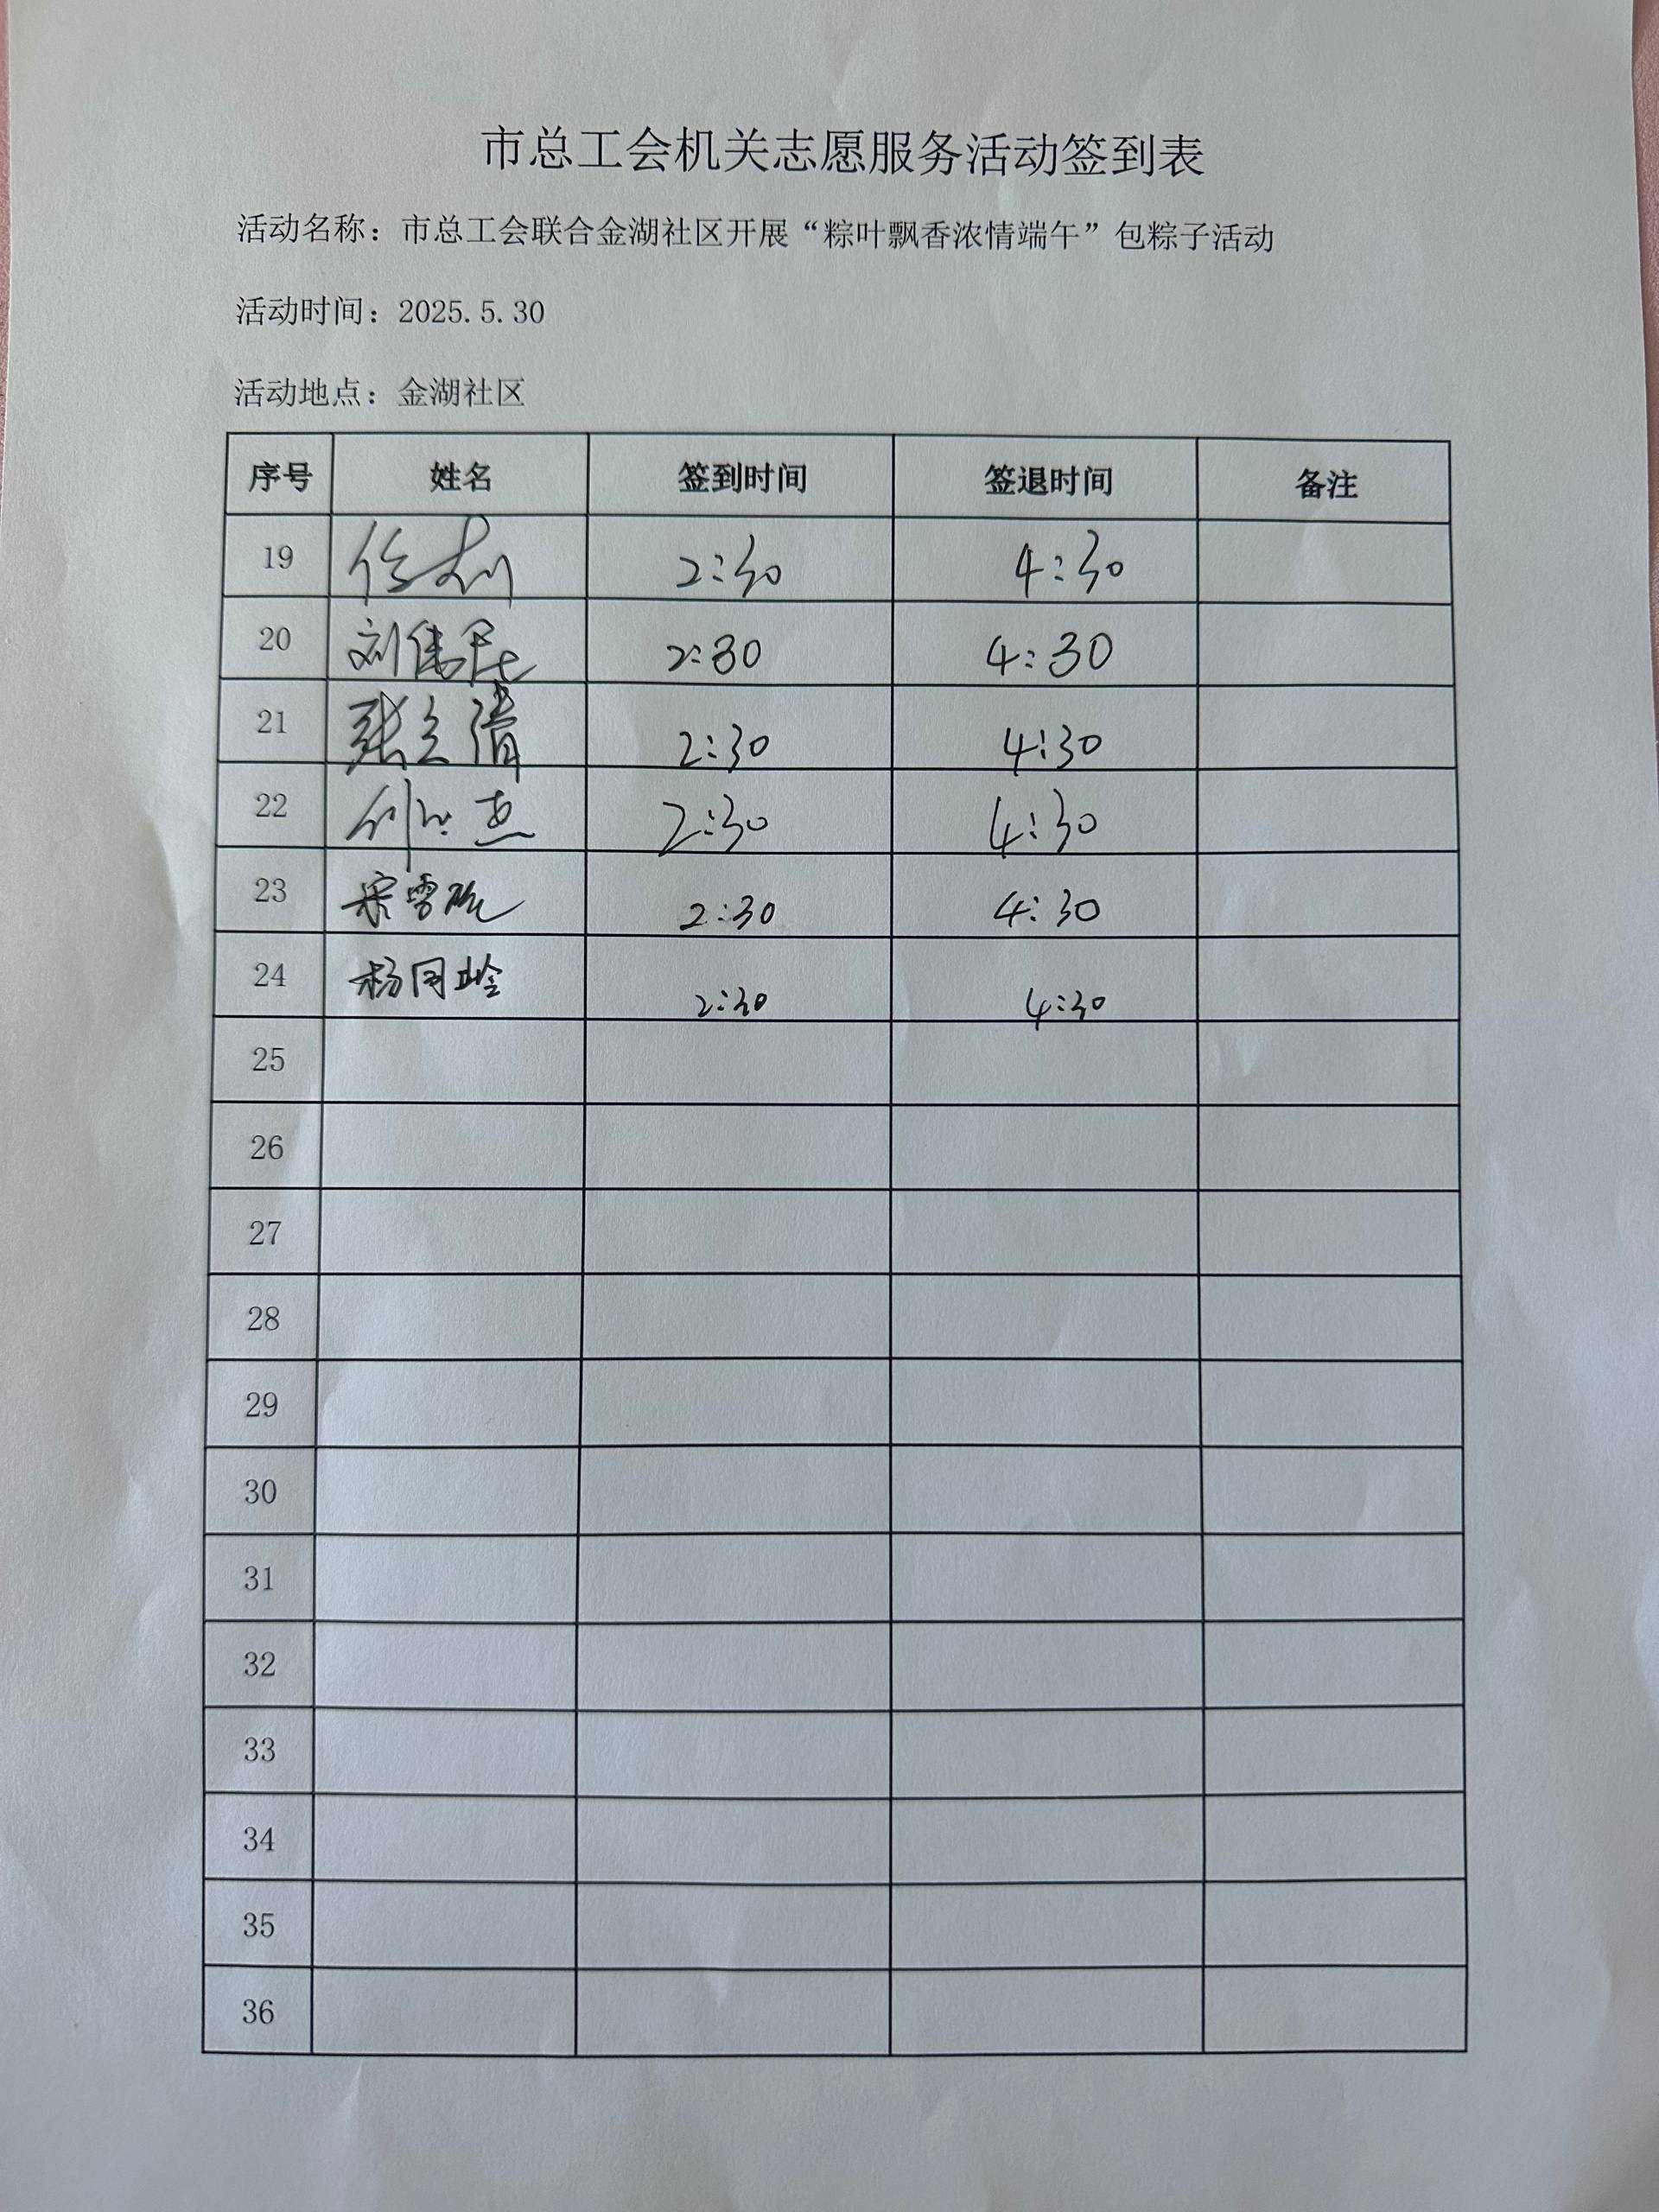 市总工会机关志愿服务活动签到表
活动名称：市总工会联合金湖社区开展“粽叶飘香浓情端午”包粽子活动
活动时间：2025.5.30
活动地点：金湖社区
序号 姓名 签到时间 签退时间 备注
19 2:30 4:30
20 刘伟民 2:30 4:30
21 张立清 2:30 4:30
22 2:30 4:30
23 2:30 4:30
24 2:30 4:30
25
26
27
28
29
30
31
32
33
34
35
36